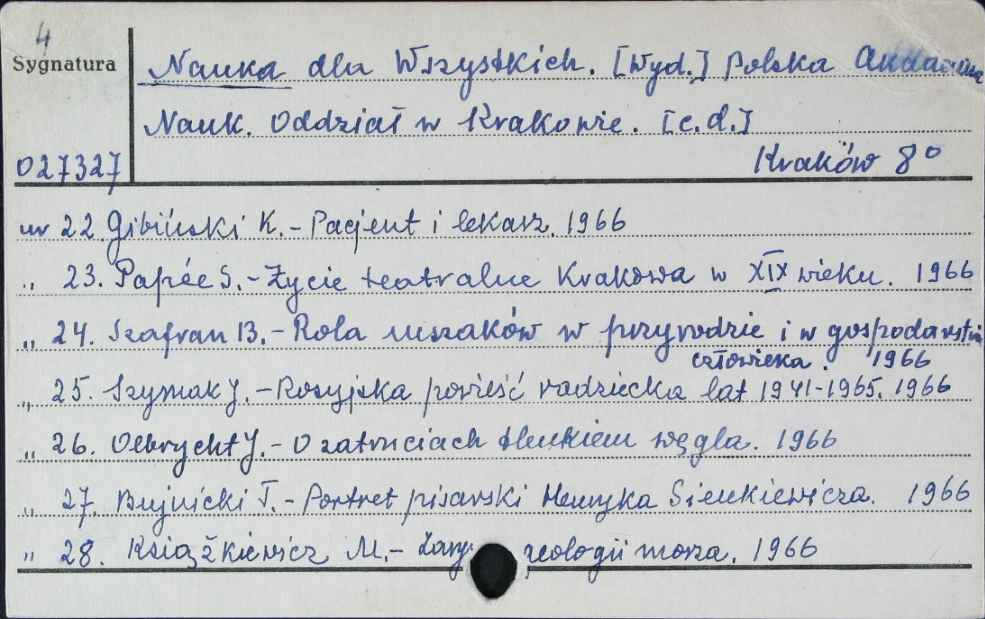 4
Sygnatura
Nauka dla Wszystkich. [Wyd.] Polska Akademia
Nauk. Oddział w Krakowie. [c.d.]
027327
Kraków 8°
nr 22 Gibiński K. - Pacjent i lekarz. 1966
„ 23. Papée S. - Życie teatralne Krakowa w XIX wieku. 1966
„ 24. Szafran B. - Rola mszaków w przyrodzie i w gospodarstwie
człowieka. 1966
„ 25. Szymak J. - Rosyjska powieść radziecka lat 1941-1965. 1966
„ 26. Olbrycht J. - O zatruciach tlenkiem węgla. 1966
„ 27. Bujnicki T. - Portret pisarski Henryka Sienkiewicza. 1966
„ 28. Książkiewicz M. - Zarys geologii morza. 1966